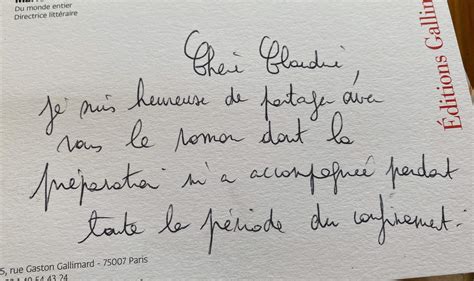 Du monde entier
Directrice littéraire
Éditions Gallim
Cher Claudie,
je suis heureuse de partager avec
vous le roman dont la
préparation m'a accompagnée pendant
toute la période du confinement.
5, rue Gaston Gallimard - 75007 Paris